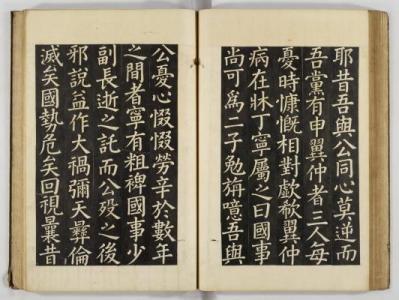 耶昔吾與公同心莫逆而
吾黨有申翼仲者三人每
憂時慷慨相對歔欷翼仲
病在牀丁寧屬之曰國事
尚可爲二子勉旃噫吾與
公憂心惙惙勞辛於數年
之間者寧有粗裨國事少
副長逝之託而公歿之後
邪說益作大禍彌天彝倫
滅矣國勢危矣回視曩昔